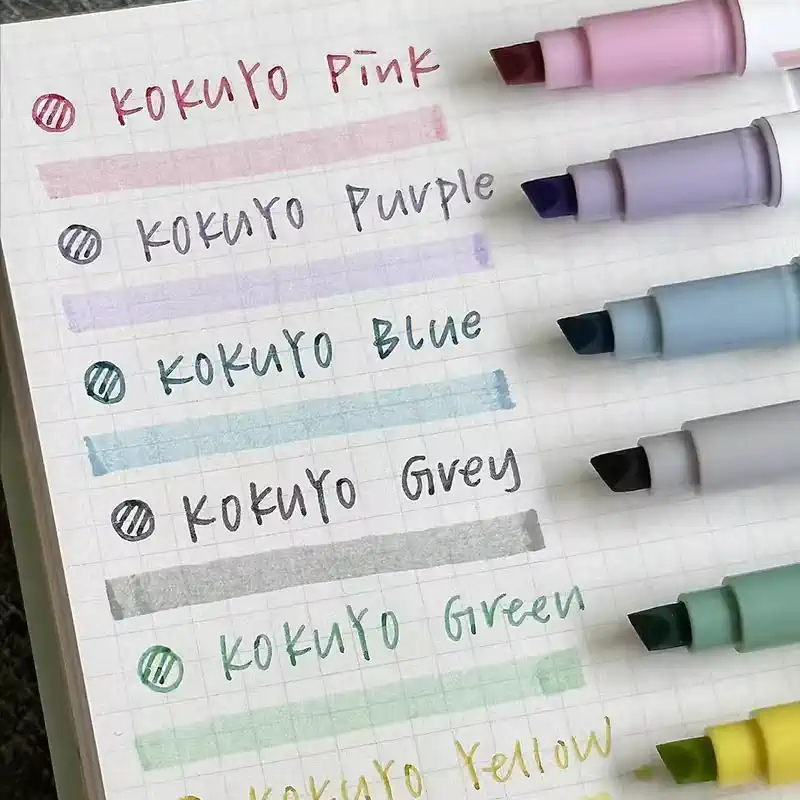 KOKUYO Pink
KOKUYO Purple
KOKUYO Blue
KOKUYO Grey
KOKUYO Green
KOKUYO Yellow